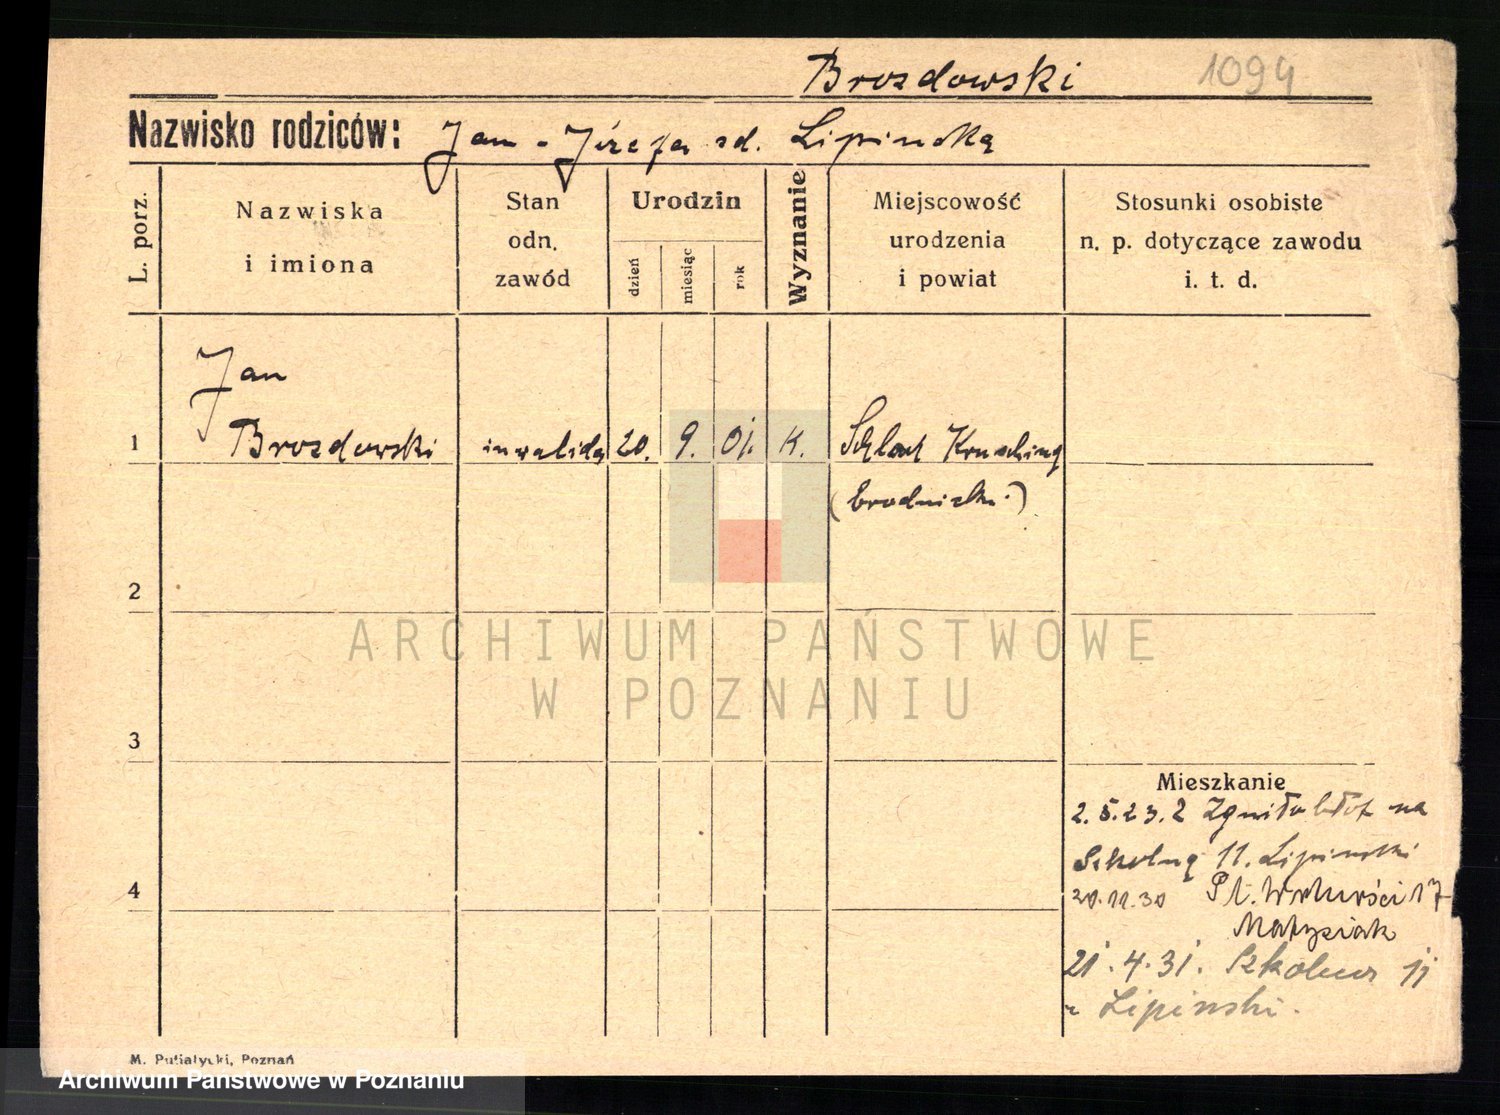 Brozdowski 1094
Nazwisko rodziców: Jan - Józefa zd. Lipińską
L. porz.
Nazwiska
i imiona
Stan
odn.
zawód
Urodzin
dzień
miesiąc
rok
Wyznanie
Miejscowość
urodzenia
i powiat
Stosunki osobiste
n. p. dotyczące zawodu
i. t. d.
Jan
1 Brozdowski inwalida 20. 9. 01. K. Schloss Kruschin
(brodnicki)
2
ARCHIWUM PAŃSTWOWE
W POZNANIU
3
Mieszkanie
2.5.23. Z na
Szkolną 11. Lipiński
4
20.11.30 Pl. 17
Matysiak
21.4.31. Szkolna 11
Lipiński.
M. Putiatycki, Poznań
Archiwum Państwowe w Poznaniu